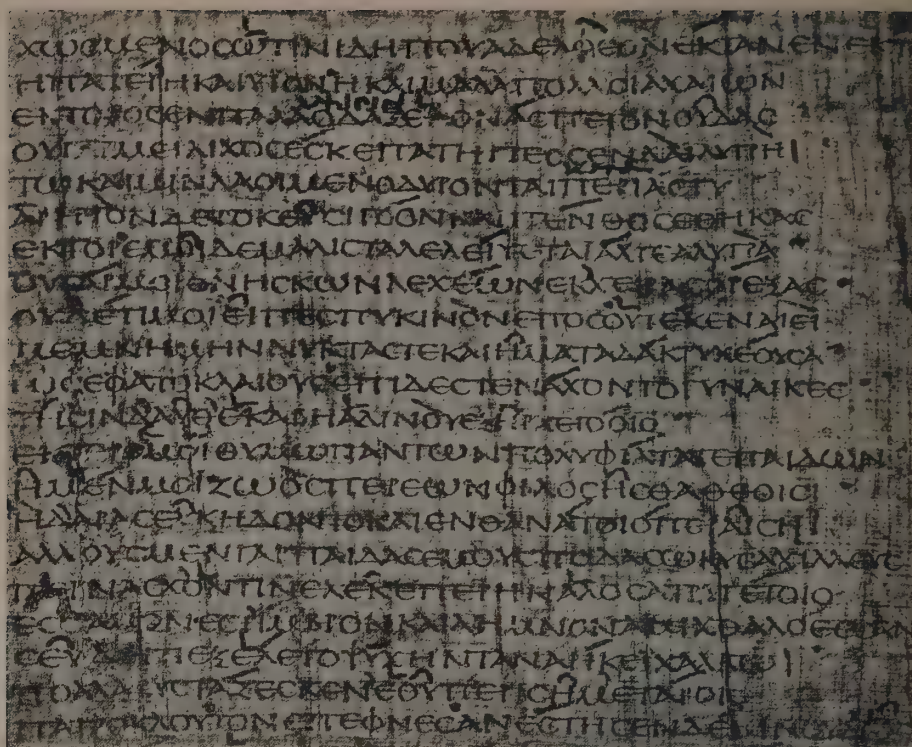 ΧΩΟΜΕΝΟCΩΤΙΝΙΔΗΠΟΥΑΔΕΛΦΕΟΝΕΚΤΑΝΕΝΕΚΤ
ΗΠΑΤΕΡΗΚΑΙΥΙΟΝΗΚΑΙΜΑΛΑΠΟΛΛΟΙΑΧΑΙΩΝ
ΕΚΤΟΡΟCΕΝΠΑΛΑΜΗΙCΙΝΟΔΑΞΕΛΟΝΑCΠΕΤΟΝΟΥΔΑC
ΟΥΓΑΡΜΕΙΛΙΧΟCΕCΚΕΠΑΤΗΡΤΕΟCΕΝΔΑΙΛΥΓΡΗΙ
ΤΩΚΑΙΜΙΝΛΑΟΙΜΕΝΟΔΥΡΟΝΤΑΙΠΕΡΙΑCΤΥ
ΑΡΗΤΟΝΔΕΤΟΚΕΥCΙΓΟΟΝΚΑΙΠΕΝΘΟCΕΘΗΚΑC
ΕΚΤΟΡΕΜΟΙΔΕΜΑΛΙCΤΑΛΕΛΕΙΨΕΤΑΙΑΛΓΕΑΛΥΓΡΑ
ΟΥΓΑΡΜΟΙΘΝΗCΚΩΝΛΕΧΕΩΝΕΚΧΕΙΡΑCΟΡΕΞΑC
ΟΥΔΕΤΙΜΟΙΕΙΠΕCΠΥΚΙΝΟΝΕΠΟCΟΥΤΕΚΕΝΑΙΕΙ
ΜΕΜΝΗΜΗΝΝΥΚΤΑCΤΕΚΑΙΗΜΑΤΑΔΑΚΡΥΧΕΟΥCΑ
ΩCΕΦΑΤΟΚΛΑΙΟΥCΕΠΙΔΕCΤΕΝΑΧΟΝΤΟΓΥΝΑΙΚΕC
ΤΗΙCΙΝΔΑΥΘΕΚΑΒΗΑΔΙΝΟΥΕΞΗΡΧΕΓΟΟΙΟ
ΕΚΤΟΡΕΜΩΙΘΥΜΩΠΑΝΤΩΝΠΟΛΥΦΙΛΤΑΤΕΠΑΙΔΩΝ
ΗΜΕΝΜΟΙΖΩΟCΠΕΡΕΩΝΦΙΛΟCΗCΘΑΘΕΟΙCΙ
ΗΔΑΡΑCΕΥΚΗΔΟΝΤΟΚΑΙΕΝΘΑΝΑΤΟΙΟΠΕΡΑΙCΗΙ
ΑΛΛΟΥCΜΕΝΓΑΡΠΑΙΔΑCΕΜΟΥCΠΟΔΑCΩΚΥCΑΧΙΛΛΕΥC
ΠΕΡΝΑCΧΟΝΤΙΝΕΛΕCΚΕΠΕΡΗΝΑΛΟCΑΤΡΥΓΕΤΟΙΟ
ΕCCΑΜΟΝΕCΤΙΜΒΡΟΝΚΑΙΛΗΜΝΟΝΑΜΙΧΘΑΛΟΕCCΑΝ
CΕΥΔΕΠΕΙΕΞΕΛΕΤΟΨΥΧΗΝΤΑΝΑΗΚΕΙΧΑΛΚΩΙ
ΠΟΛΛΑΡΥCΤΑΖΕCΚΕΝΕΟΥΠΕΡΙCΗΜΕΤΑΡΟΙΟ
ΠΑΤΡΟΚΛΟΥΤΟΝΕΠΕΦΝΕCΑΝΕCΤΗCΕΝΔΕΜΙΝ